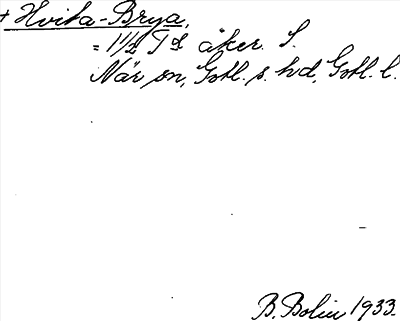 + Hvita-Brya,
= 1 1/2 T L åker. S.
När sn, Gotl. s. hd, Gotl. l.
B. Bolin 1933.